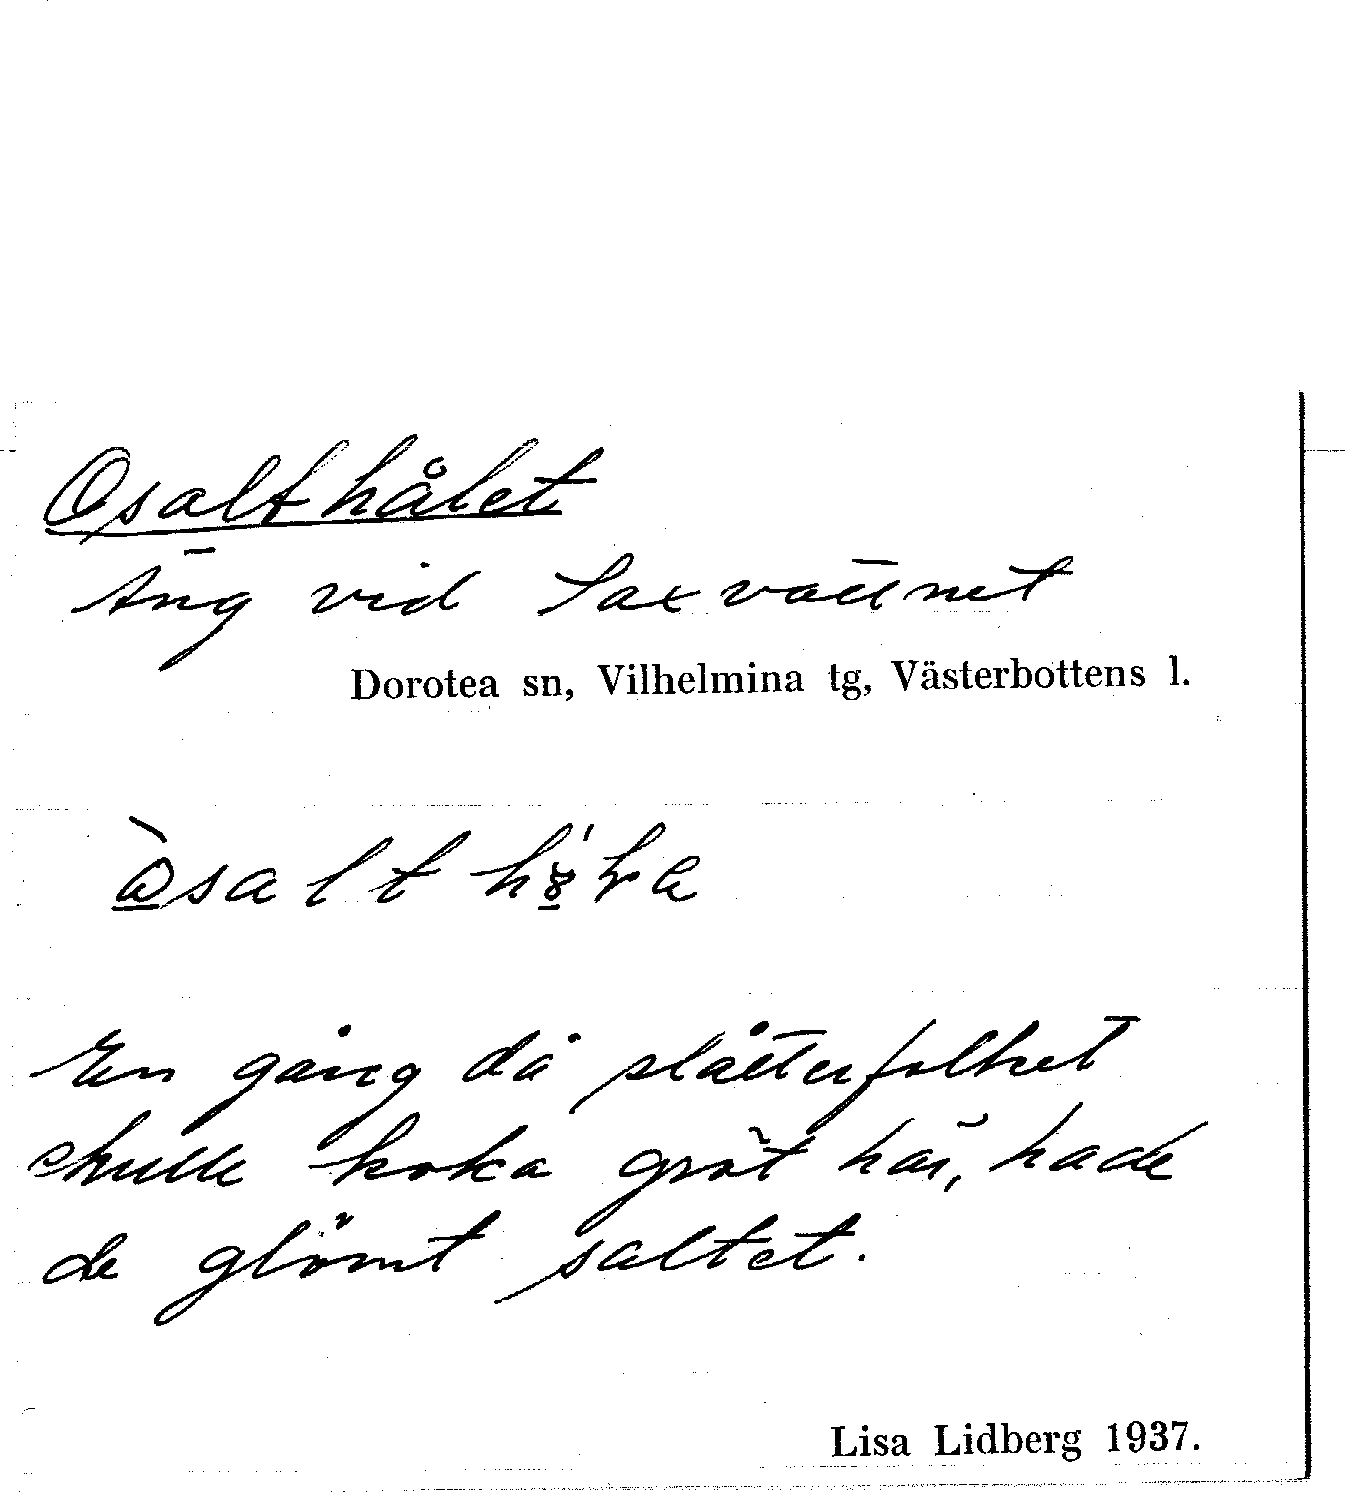 Osalthålet
Äng vid Saxvattnet
Dorotea sn, Vilhelmina tg, Västerbottens l.
En gång då slåtterfolket
skulle koka gröt här, hade
de glömt saltet.
Lisa Lidberg 1937.